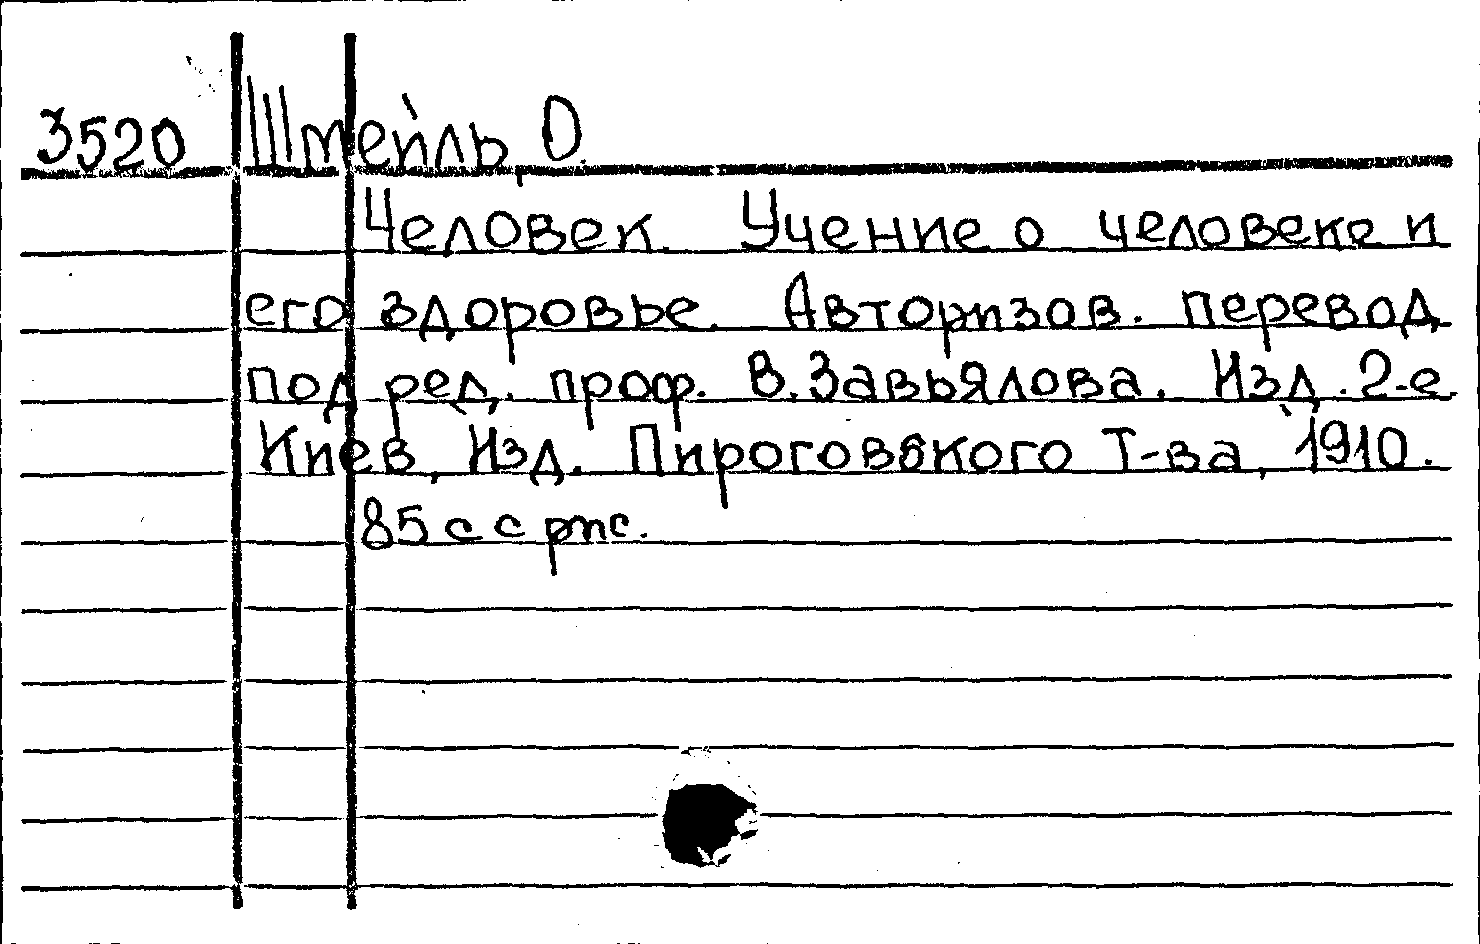 3520 Штейль, О.
Человек. Учение о человеке и
его здоровье. Авторизов. перевод
под ред. проф. В. Завьялова. Изд. 2-е.
Киев, Изд. Пироговского Т-ва, 1910.
85 с с рис.